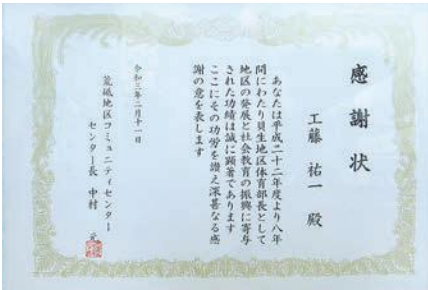 感謝状
工藤祐一 殿
あなたは平成二十二年度より八年
間にわたり貝生地区体育部長として
地区の発展と社会教育の振興に寄与
された功績は誠に顕著であります
ここにその功労を讃え深甚なる感
謝の意を表します
令和三年二月十一日
荒砥地区コミュニティセンター
センター長 中村